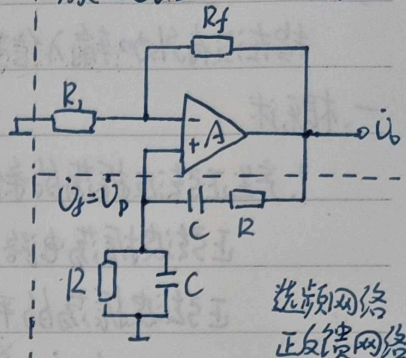 Rf
R₁
−
A
+
U̇o
U̇f=U̇p
C
R
R
C
选频网络
正反馈网络